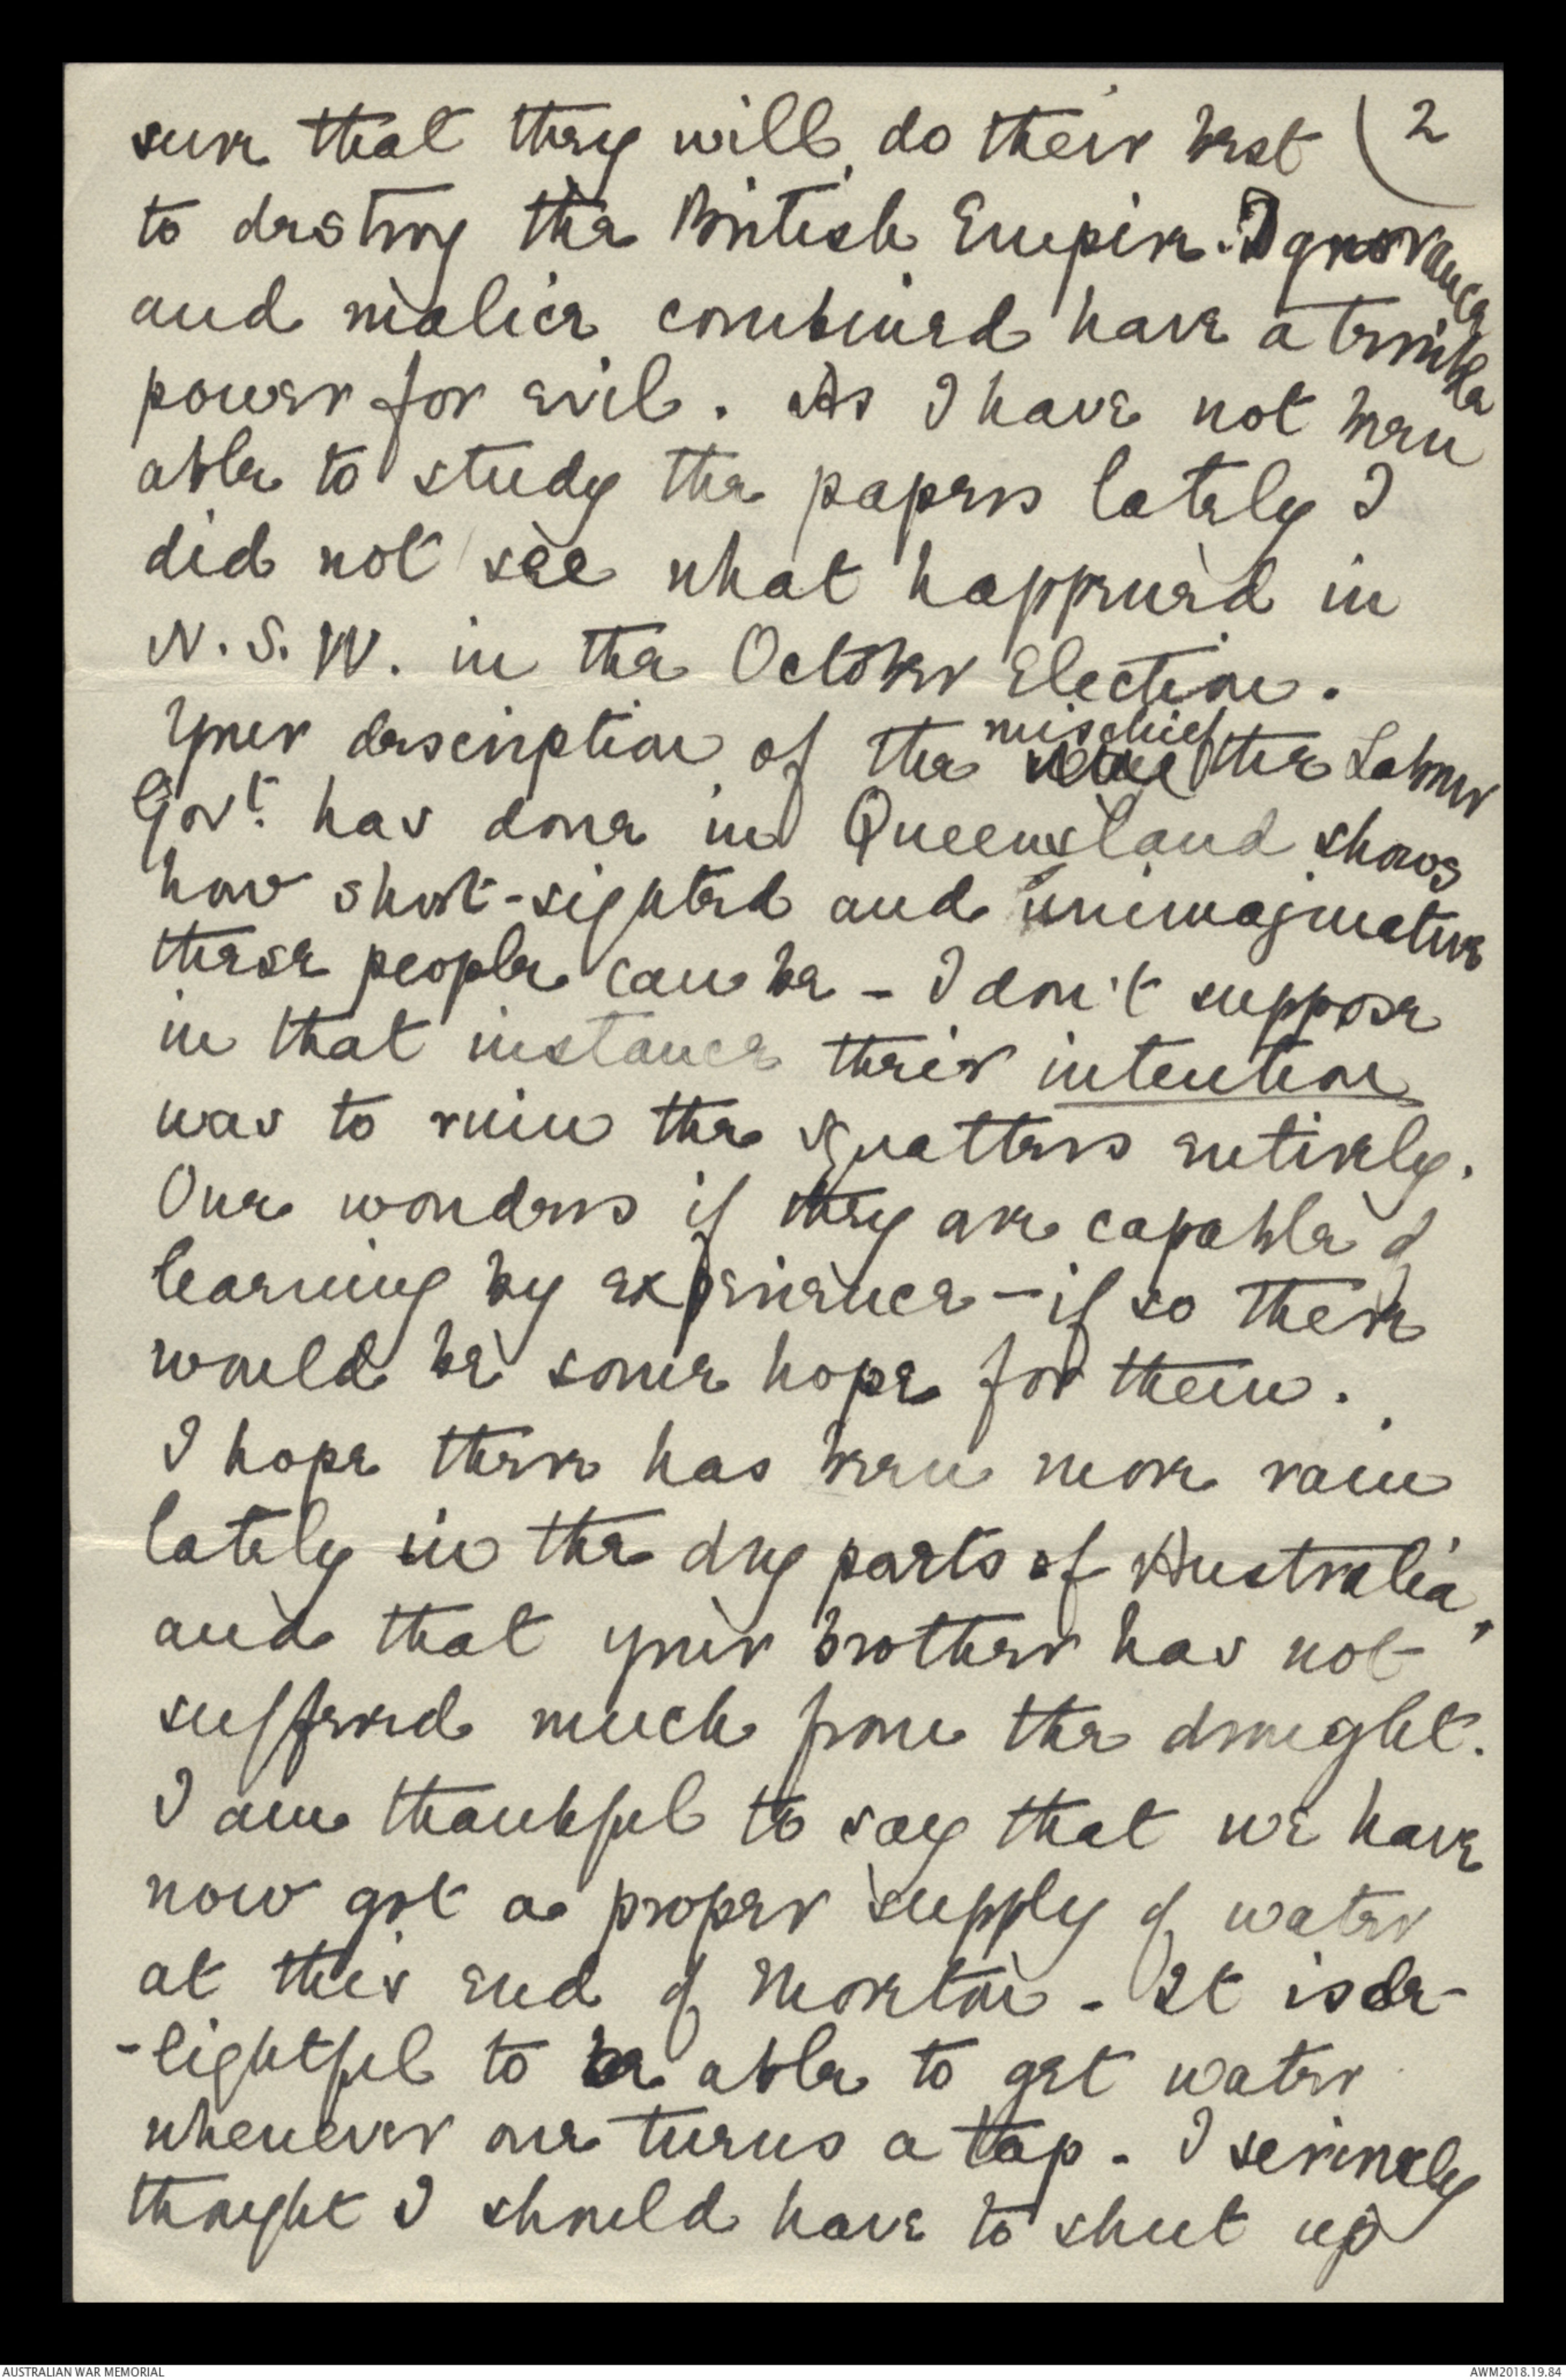 sure that they will do their best (2
to destroy the British Empire. Ignorance
and malice combined have a terrible
power for evil. As I have not been
able to study the papers lately I
did not see what happened in
N.S.W. in the October Election.
Your description of the mischief the Labour
Govt. has done in Queensland shows
how short-sighted and unimaginative
these people can be - I don't suppose
in that instance their intention
was to ruin the squatters entirely.
One wonders if they are capable of
learning by experience - if so there
would be some hope for them.
I hope there has been more rain
lately in the dry parts of Australia,
and that your brother has not
suffered much from the drought.
I am thankful to say that we have
now got a proper supply of water
at this end of Moreton. It is de-
-lightful to be able to get water
whenever one turns a tap. I seriously
thought I should have to shut up
AUSTRALIAN WAR MEMORIAL
AWM2018.19.84